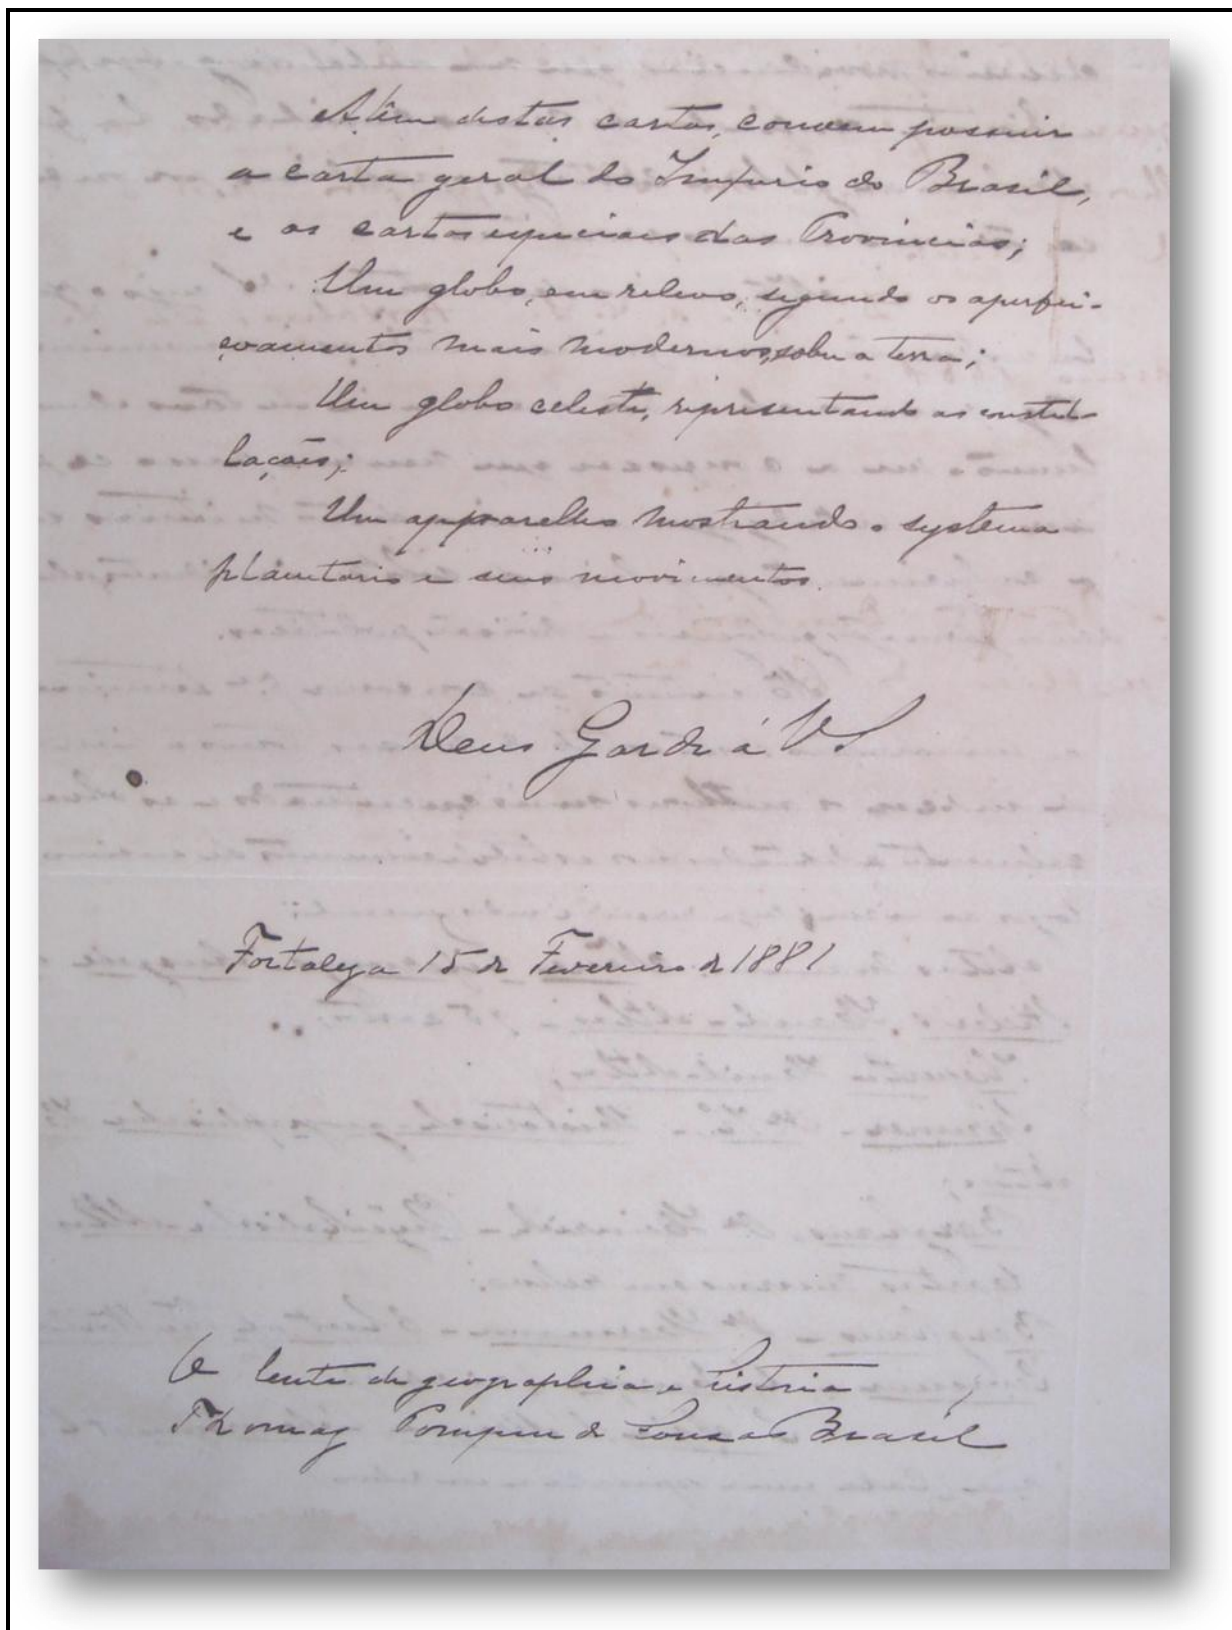 Alem destas cartas, convem possuir
a carta geral do Imperio do Brasil,
e as cartas especiaes das Provincias;
Um globo, em relevo, segundo os aperfei-
çoamentos mais modernos, sobre a terra;
Um globo celeste, representando as constel-
lações;
Um apparelho mostrando o systema
planetario e seus movimentos.
Deus Garde á VS
Fortaleza 15 de Fevereiro de 1881
O lente de geographia e historia,
Thomaz Pompeu de Sousa Brasil